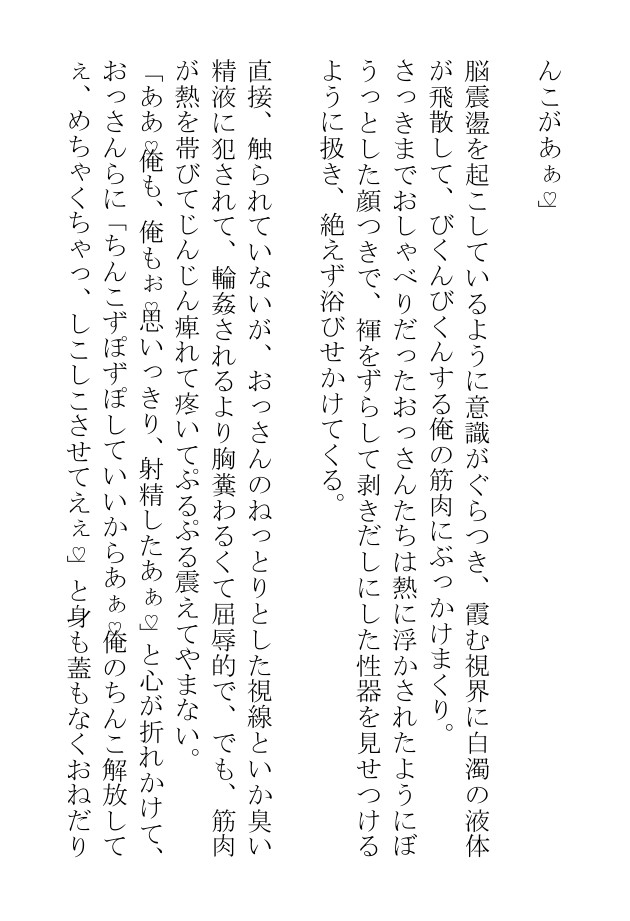 んこがあぁ♡」
脳震盪を起こしているように意識がぐらつき、霞む視界に白濁の液体
が飛散して、びくんびくんする俺の筋肉にぶっかけまくり。
さっきまでおしゃべりだったおっさんたちは熱に浮かされたようにぼ
うっとした顔つきで、褌をずらして剥きだしにした性器を見せつける
ように扱き、絶えず浴びせかけてくる。
直接、触られていないが、おっさんのねっとりとした視線といか臭い
精液に犯されて、輪姦されるより胸糞わるくて屈辱的で、でも、筋肉
が熱を帯びてじんじん痺れて疼いてぷるぷる震えてやまない。
「ああ♡俺も、俺もぉ♡思いっきり、射精したあぁ♡」と心が折れかけて、
おっさんらに「ちんこずぽずぽしていいからあぁ♡俺のちんこ解放して
ぇ、めちゃくちゃっ、しこしこさせてえぇ♡」と身も蓋もなくおねだり